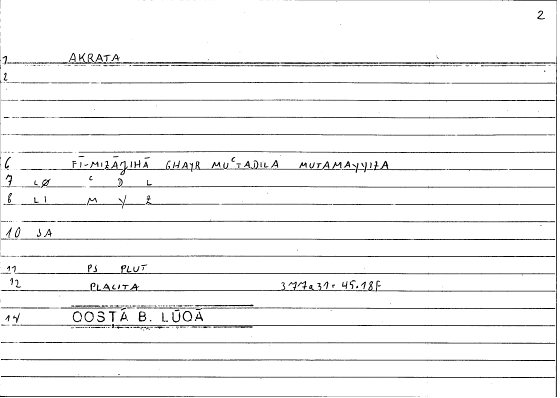 2
1 AKRATA
2
6 FĪ-MIZĀǦIHĀ GHAYR MUᶜTADILA MUTAMAYYIZA
7 LØ ᶜ D L
8 LI M Y Z
10 SA
11 PS PLUT
12 PLACITA 377a31 = 45.18f
14 QOSṬĀ B. LŪQĀ